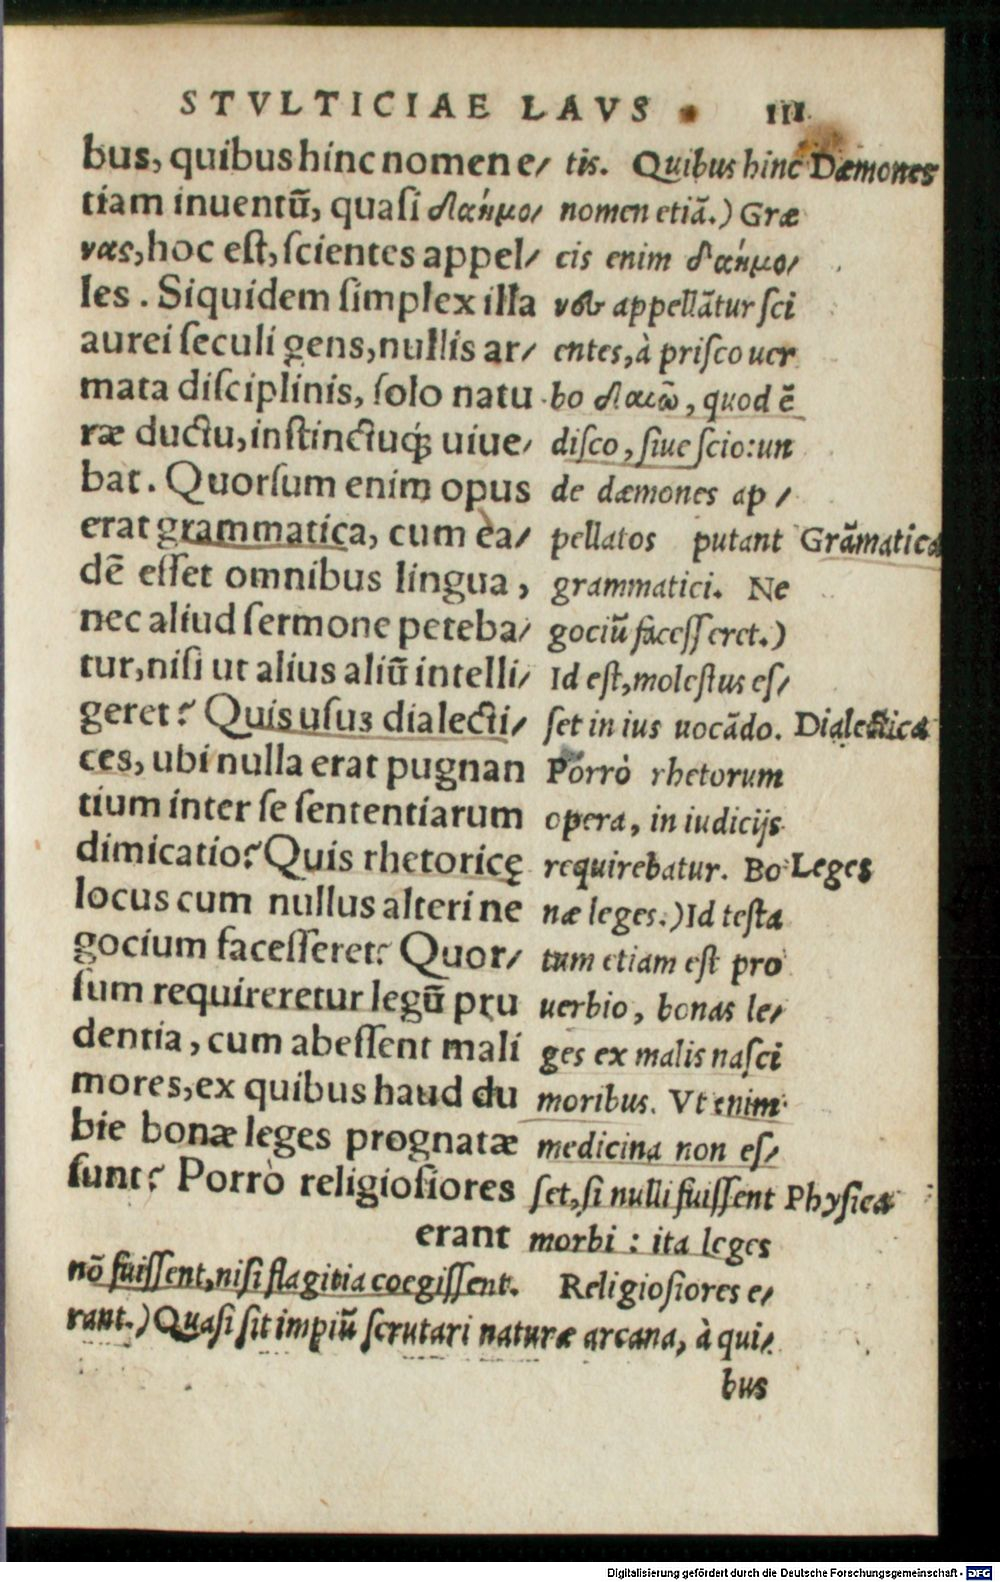 STVLTICIAE LAVS. III
bus, quibus hinc nomen e/
tiam inuentũ, quasi δαήμο/
νας, hoc est, scientes appel/
les. Siquidem simplex illa
aurei seculi gens, nullis ar/
mata disciplinis, solo natu
ræ ductu, instinctuq́; uiue/
bat. Quorsum enim opus
erat grammatica, cum ea/
dẽ esset omnibus lingua,
nec aliud sermone peteba/
tur, nisi ut alius aliũ intelli/
geret? Quis usus dialecti/
ces, ubi nulla erat pugnan
tium inter se sententiarum
dimicatio? Quis rhetoricę
locus cum nullus alteri ne
gocium facesseret? Quor/
sum requireretur legũ pru
dentia, cum abessent mali
mores, ex quibus haud du
bie bonæ leges prognatæ
sunt? Porrò religiosiores
erant
tis. Quibus hinc
nomen etiã.) Græ
cis enim δαήμο/
νες appellãtur sci
entes, à prisco uer
bo δαιῶ, quod ẽ
disco, siue scio: un
de dæmones ap/
pellatos putant
grammatici. Ne
gociũ facesseret.)
Id est, molestus es/
set in ius uocãdo.
Porrò rhetorum
opera, in iudicijs
requirebatur. Bo
næ leges.) Id testa
tum etiam est pro
uerbio, bonas le/
ges ex malis nasci
moribus. Vt enim
medicina non es/
set, si nulli fuissent
morbi: ita leges
nõ fuissent, nisi flagitia coegissent. Religiosiores e/
rant.) Quasi sit impiũ scrutari naturæ arcana, à qui/
bus
Dæmones
Grãmatica
Dialectica
Leges
Physica
Digitalisierung gefördert durch die Deutsche Forschungsgemeinschaft - DFG